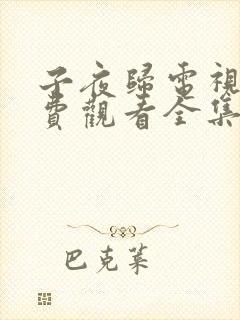 子夜歸電視
費觀看全集
巴克萊